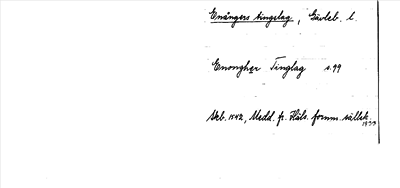 Enångers tingslag, Gävleb. l.
Enongher Tinglag s. 99
Skb. 1542, Medd. fr. Häls. fornm. sällsk.